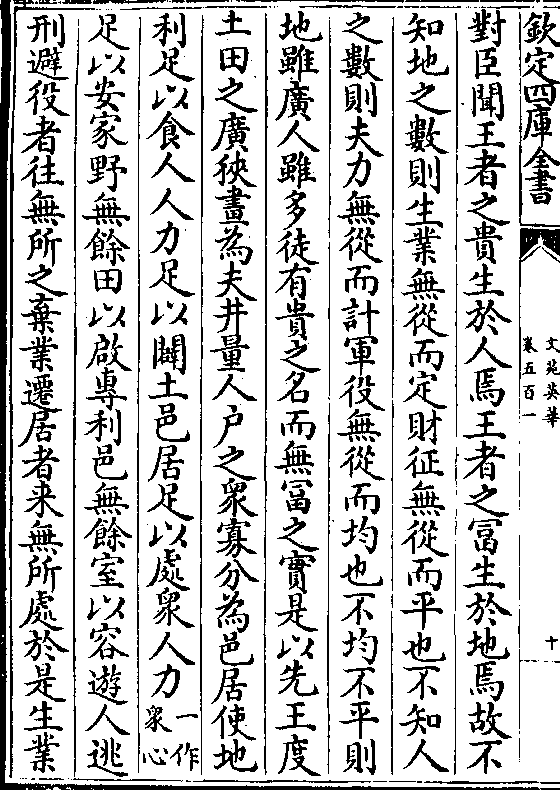 欽定四庫全書
文苑英華
卷五百一
十
對臣聞王者之貴生於人焉王者之冨生於地焉故不
知地之數則生業無從而定財征無從而平也不知人
之數則夫力無從而計軍役無從而均也不均不平則
地雖廣人雖多徒有貴之名而無冨之實是以先王度
土田之廣狹畫為夫井量人户之衆寡分為邑居使地
利足以食人人力足以闢土邑居足以處衆人力一作衆心
足以安家野無餘田以啟專利邑無餘室以容遊人逃
刑避役者往無所之棄業遷居者来無所處於是生業